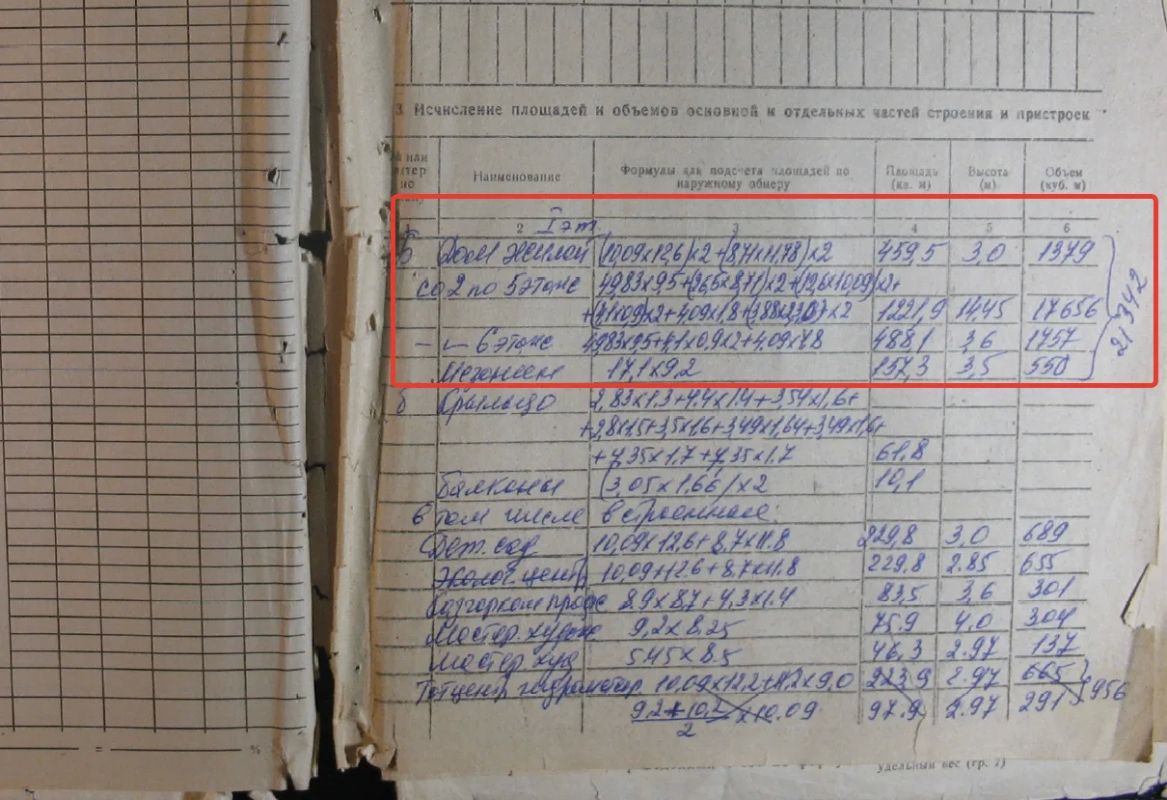 3 Исчисление площадей и объемов основной и отдельных частей строения и пристроек
Наименование Формулы для подсчета площадей по наружному обмеру Площадь (кв. м) Высота (м) Объем (куб. м)
2 3 4 5 6
I эт.
Б Дом жилой (10,09х12,6)х2+(8,71х11,78)х2 459,5 3,0 1379
со 2 по 5 этаж 49,83х9,5+(26,5х8,71)х2+(12,6х10,09)х2+
1221,9 14,45 17656
21342
— „ — 6 этаж 49,83х9,5+4,1х0,9х2+4,09х1,8 488,1 3,6 1757
Мезонин 17,1х9,2 157,3 3,5 550
б Крыльцо 2,83х1,3+4,4х1,4+3,54х1,6+
+2,8х1,5+3,5х1,6+3,49х1,64+3,49х1,6+
+4,35х1,7+4,35х1,7 61,8
Балконы (3,05х1,66)х2 10,1
в том числе встроенные:
Дет. сад 10,09х12,6+8,7х11.8 229,8 3,0 689
Эколог. центр 10,09+12.6+8.7х11.8 229,8 2.85 655
8,9х8,7+4,3х1.4 83,5 3,6 301
Мастер. худож 9,2х8.25 75.9 4,0 304
мастер. худ 5.45х8.5 46,3 2.97 137
10,09х12,2+11,2х9,0 223,9 2.97 665
956
9,2+10,2 х10.09 97.9 2.97 291
2
— = — %
удельный вес (гр. 7)